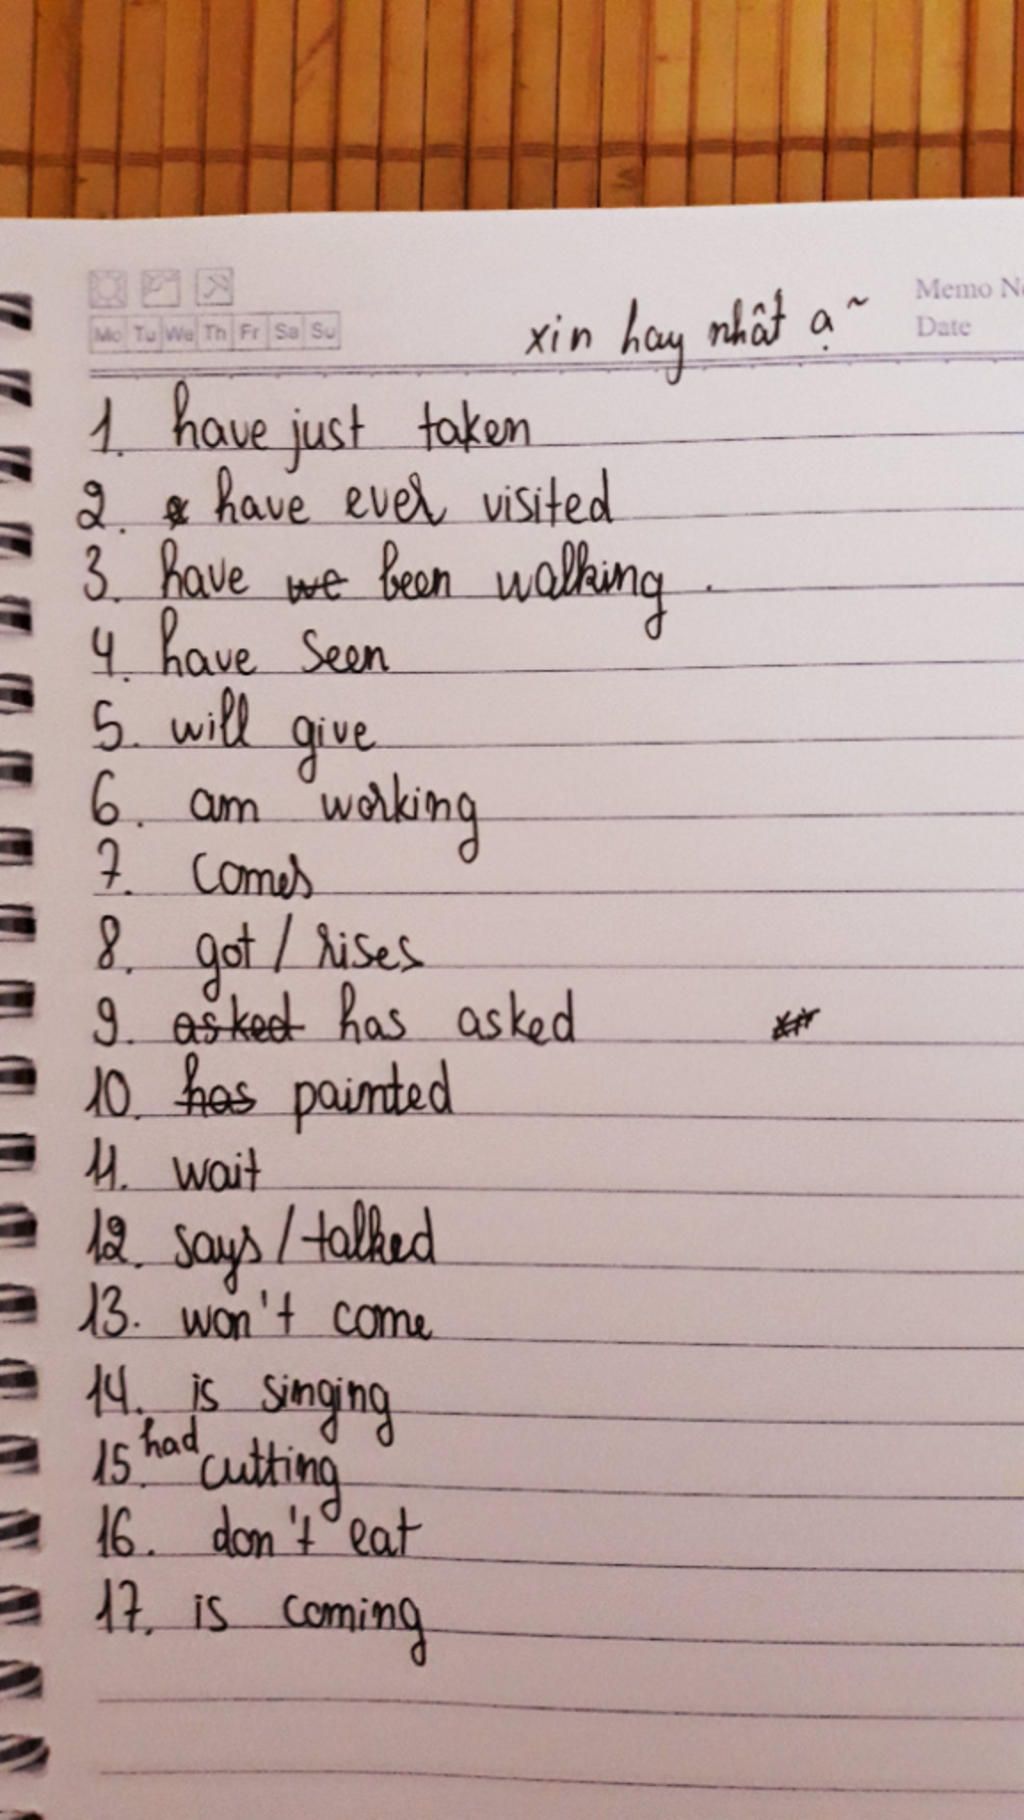 Mo Tu We Th Fr Sa Su
Memo
Date
xin hay nhất ạ ~
1. have just taken
2. have ever visited
3. have we been walking .
4. have seen
5. will give
6. am working
7. comes
8. got / rises
9. asked has asked
10. has painted
11. wait
12. says / talked
13. won't come
14. is singing
15. had cutting
16. don't eat
17. is coming